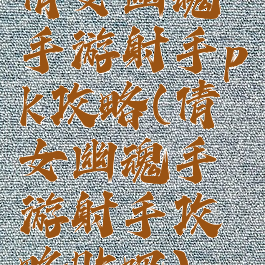 倩女幽魂
手游射手p
k攻略(倩
女幽魂手
游射手攻